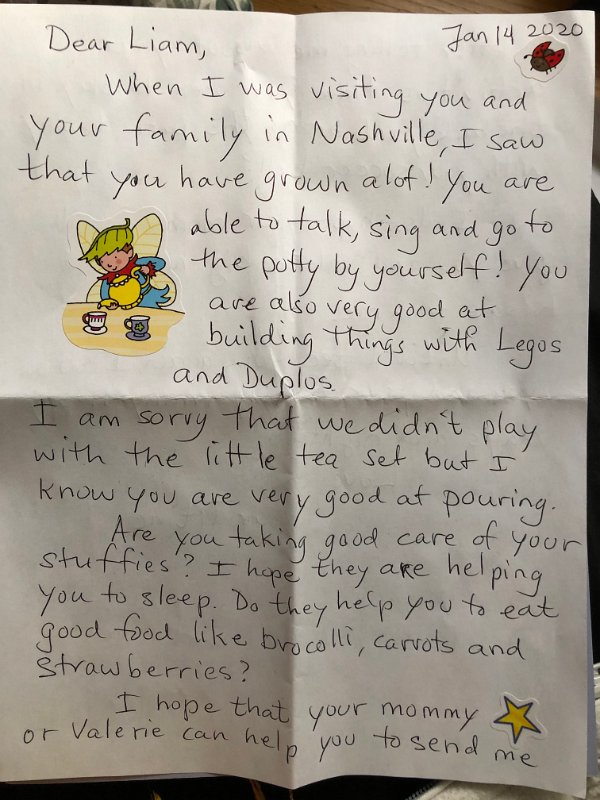 Jan 14 2020
Dear Liam,
When I was visiting you and
your family in Nashville, I saw
that you have grown alot! You are
able to talk, sing and go to
the potty by yourself! You
are also very good at
building things with Legos
and Duplos.
I am sorry that we didn't play
with the little tea set but I
know you are very good at pouring.
Are you taking good care of your
stuffies? I hope they are helping
you to sleep. Do they help you to eat
good food like brocolli, carrots and
strawberries?
I hope that your mommy
or Valerie can help you to send me